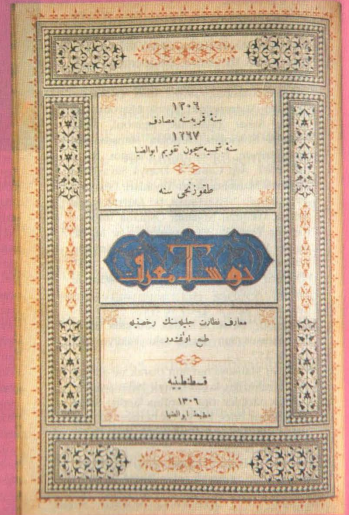 ١٣٠٩
سنهٔ قمریه‌سنه مصادف
١٢٦٧
سنهٔ شمسیه‌سیچون تقویم ابوالضیا
طقوزنجی سنه
معارف نظارت جلیله‌سنك رخصتیله
طبع اولنمشدر
قسطنطینیه
١٣٠٦
مطبعهٔ ابوالضیا